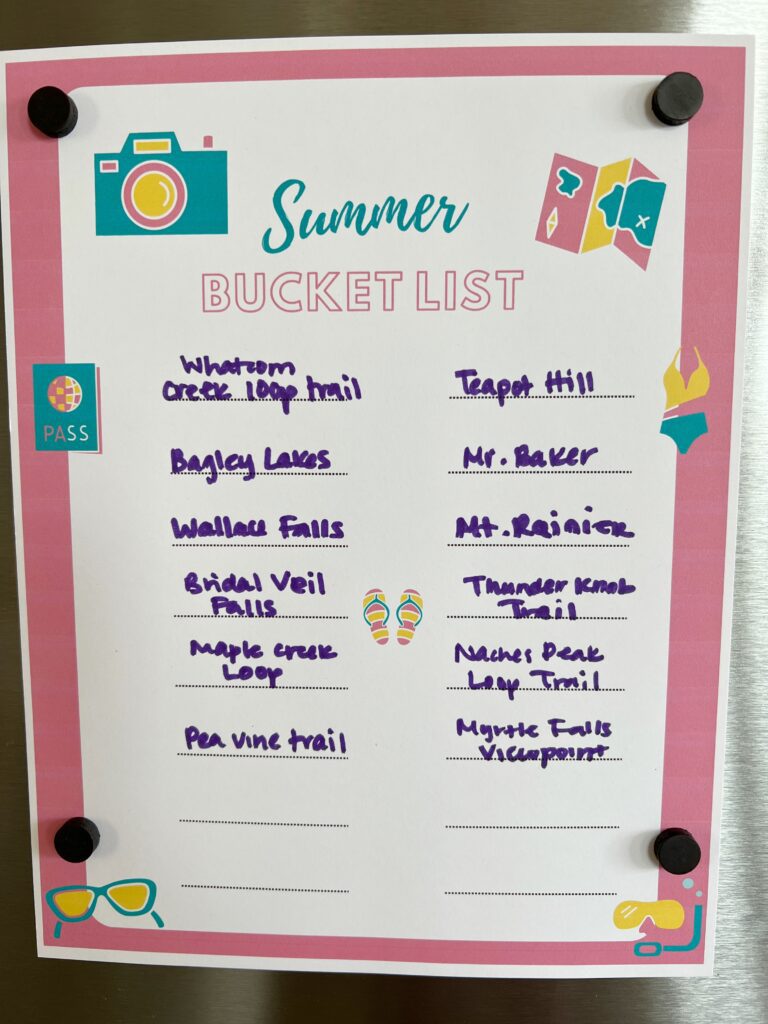 Summer
BUCKET LIST
PASS
Whatcom
Creek loop trail
Bagley Lakes
Wallace Falls
Bridal Veil
Falls
Maple Creek
Loop
Pea vine trail
Teapot Hill
Mr. Baker
Mt. Rainier
Thunder Knob
Trail
Naches Peak
Loop Trail
Myrtle Falls
Viewpoint